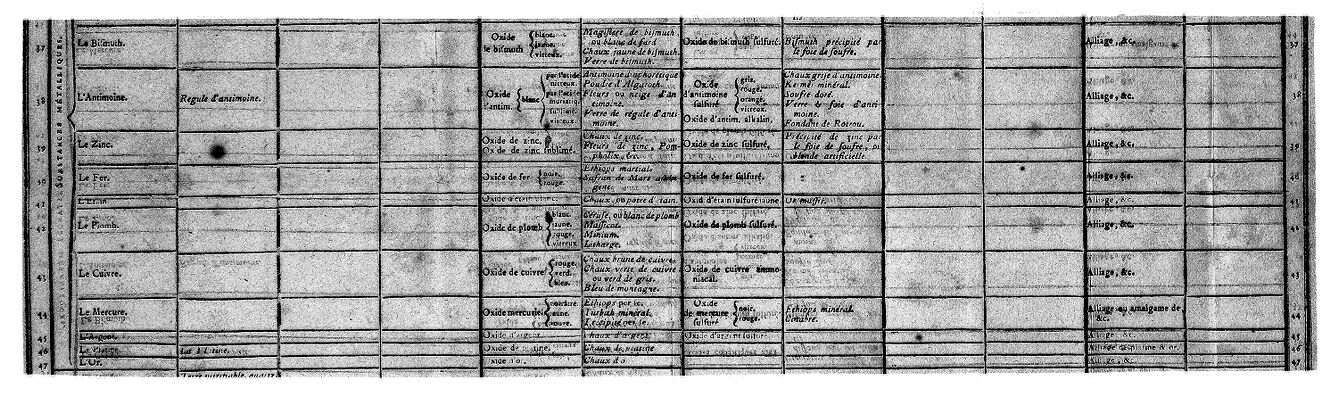 SUBSTANCES MÉTALLIQUES.
37 Le Bismuth. Oxide de bismuth { blanc. jaune. vitreux. Magistere de bismuth ou blanc de fard Chaux jaune de bismuth. Verre de bismuth. Oxide de bismuth sulfuré. Bismuth précipité par le foie de soufre. Alliage, &c. 37
38 L'Antimoine. Regule d'antimoine. Oxide d'antim. { blanc { par l'acide nitreux. par l'acide muriatiq. sublimé. vitreux. Antimoine diaphorétique Poudre d'Algaroth. Fleurs ou neige d'antimoine. Verre de régule d'antimoine. Oxide d'antimoine sulfuré { gris. rouge. orangé. vitreux. Oxide d'antim. alkalin. Chaux grise d'antimoine. Kermès minéral. Soufre doré. Verre & foie d'antimoine. Fondant de Rotrou. Alliage, &c. 38
39 Le Zinc. Oxide de zinc. Oxide de zinc sublimé. Chaux de zinc. Fleurs de zinc, Pompholix, &c. Oxide de zinc sulfuré. Précipité de zinc par le foie de soufre, ou blende artificielle. Alliage, &c. 39
Le Fer. Oxide de fer { noir. rouge. Ethiops martial. Safran de Mars Oxide de fer sulfuré. Alliage, &c.
41 L'Etain. Oxide d'étain blanc. Chaux, ou potée d'étain. Oxid. d'étain sulfuré jaune. Or mussif. Alliage, &c. 41
42 Le Plomb. Oxide de plomb { blanc. jaune. rouge. vitreux. Céruse, ou blanc de plomb Massicot. Minium. Litharge. Oxide de plomb sulfuré. Alliage, &c.
43 Le Cuivre. Oxide de cuivre { rouge. verd. bleu. Chaux brune de cuivre. Chaux verte de cuivre ou verd de gris. Bleu de montagne. Oxide de cuivre ammoniacal. Alliage, &c. 43
44 Le Mercure. Oxide mercuriel { noirâtre. jaune. rouge. Ethiops per se. Turbith minéral. Précipité per se. Oxide de mercure sulfuré { noir. rouge. Ethiops minéral. Cinabre. Alliage ou amalgame de &c. 44
45 L'Argent. Oxide d'argent. Chaux d'argent. Oxide d'argent sulfuré. Alliage, &c. 45
46 Le Platine. Oxide de platine. Chaux de platine Alliage de platine & or. 46
47 L'Or. Oxide d'or. Chaux d'or Alliage, &c. 47